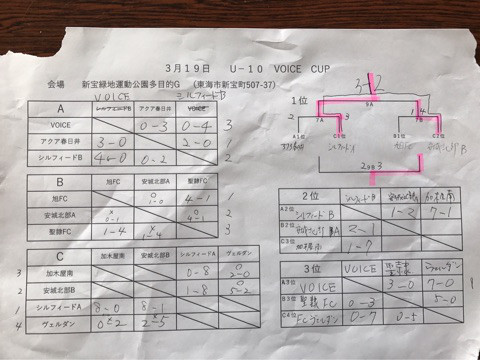 ３月１９日　Ｕ－１０　ＶＯＩＣＥ　ＣＵＰ
会場　新宝緑地運動公園多目的G　(東海市新宝町507-37)
VOICE シルフィードB
A シルフィードB アクア春日井 VOICE
VOICE 0-3 0-4 3
アクア春日井 3-0 2-0 1
シルフィードB 4-0 0-2 2
B 旭FC 安城北部A 聖隷FC
旭FC 1-0 4-1 1
安城北部A 0-1 4-1 2
聖隷FC 1-4 1-4 3
C 加木屋南 安城北部B シルフィードA ヴェルダン
3 加木屋南 0-8
2 安城北部B 1-8 5-2
1 シルフィードA 8-0 8-1
4 ヴェルダン 0-2 2-5
3 2
1位 9A
7A 7B
A1位 C1位 B1位 C2位
旭FC
2 9B 3
2位 シルフィードB 加木屋南
A2位 シルフィードB 1-2 7-1
B2位 2-1
C3位 加木屋南 1-7
3位 VOICE
A3位 VOICE 3-0 7-0
B3位 FC 0-3 5-0
C4位 FCヴェルダン 0-7 0-5